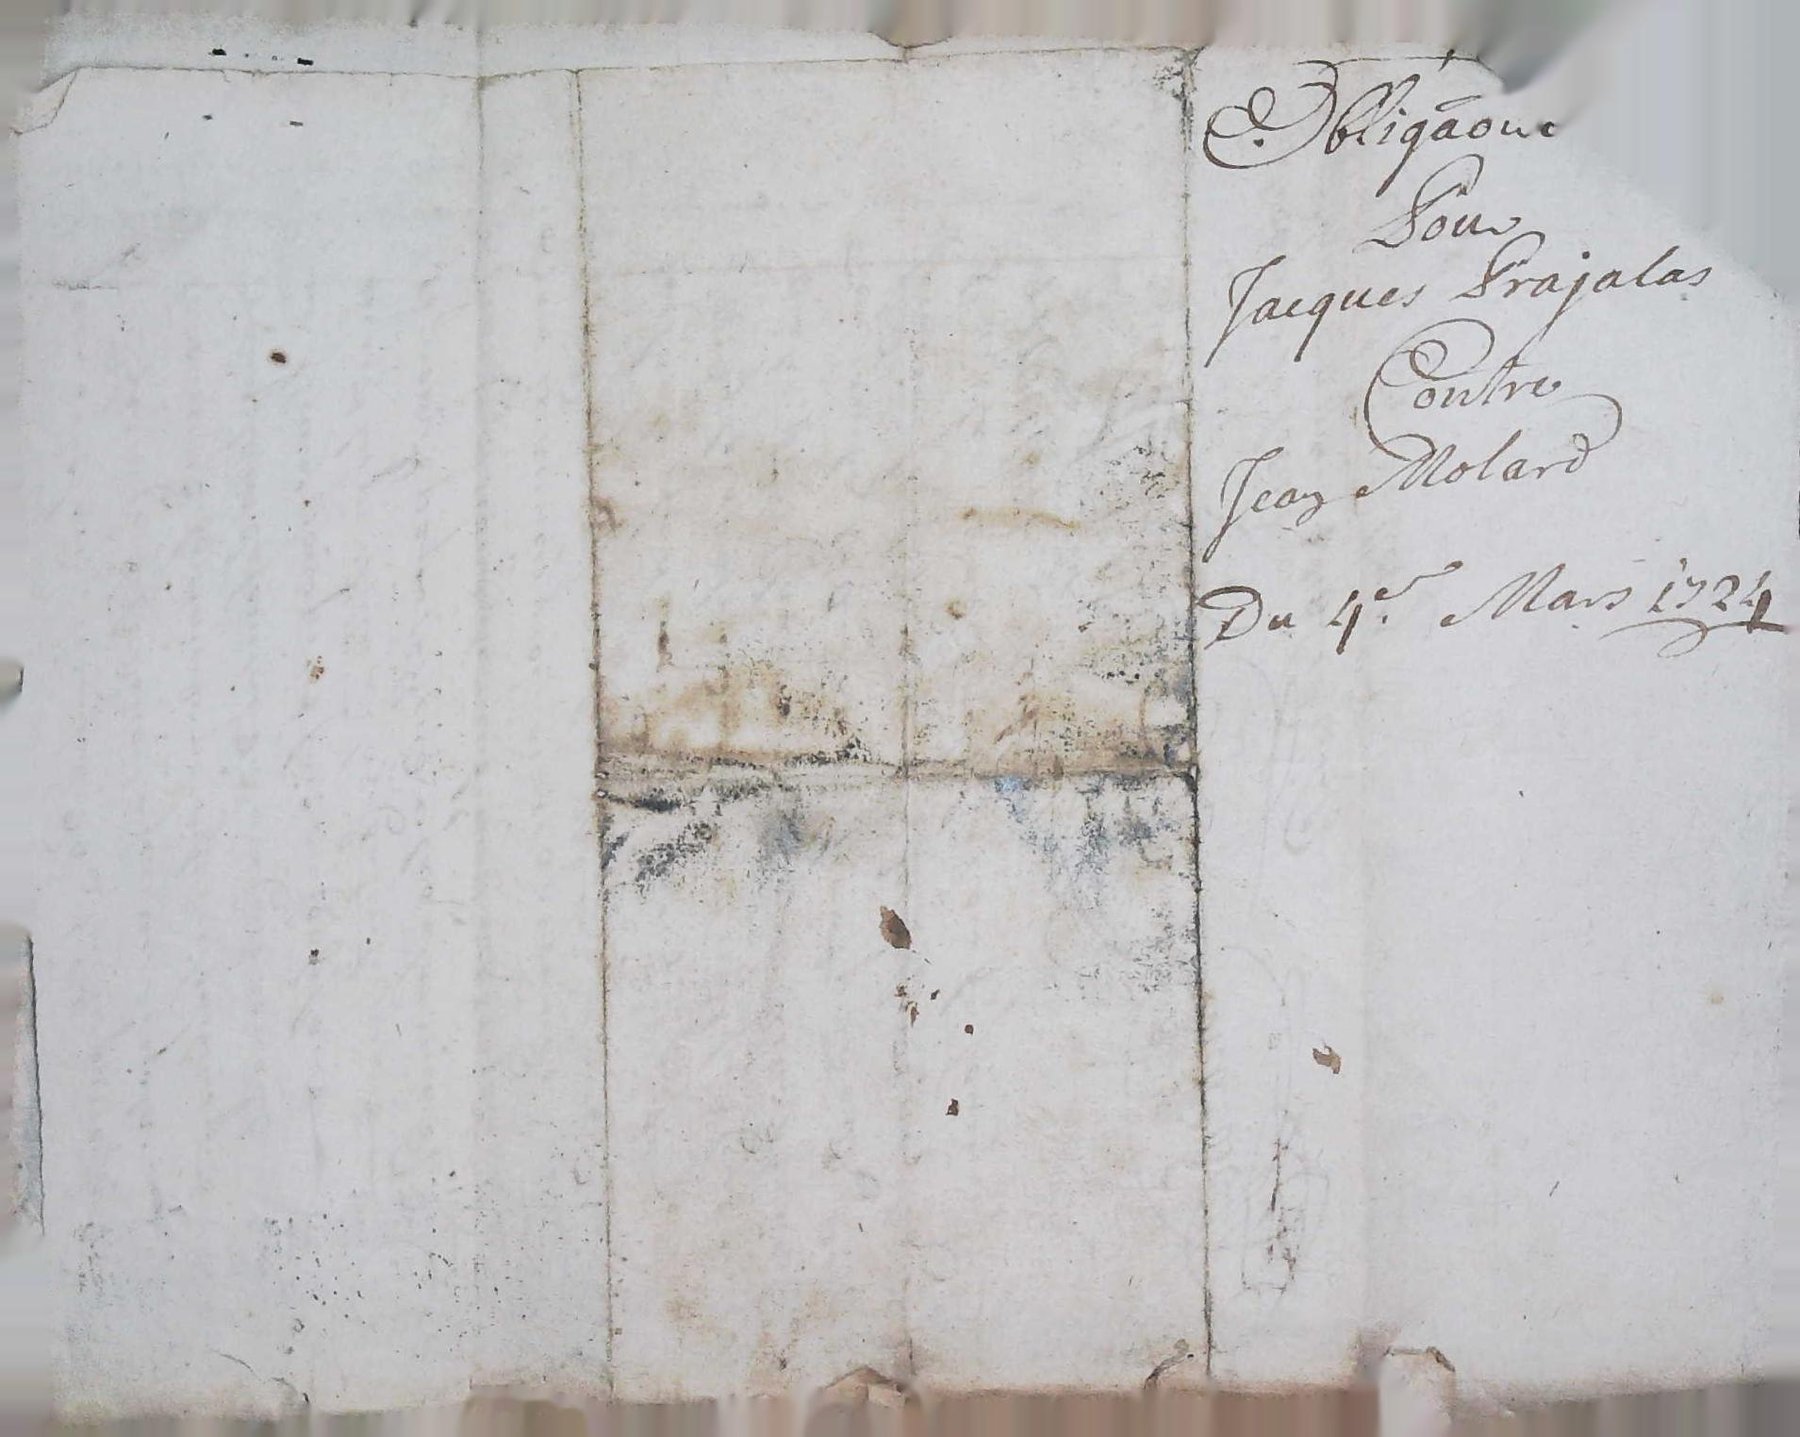 Obligãon
Pour
Jacques Prajalas
Contre
Jean Molard
Du 4e. Mars 1724